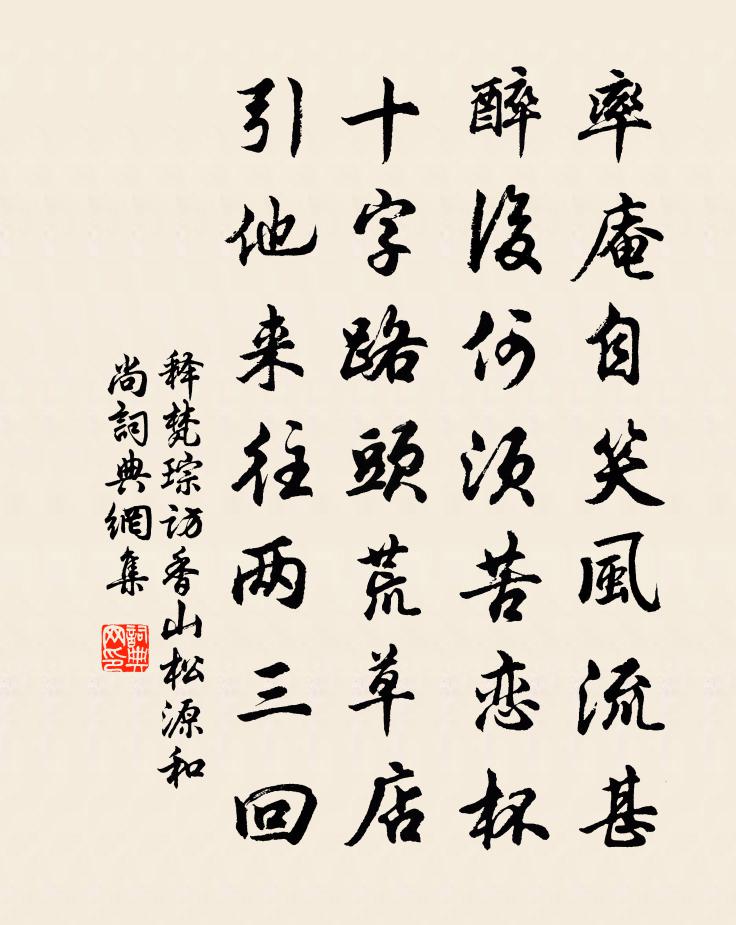 率庵自笑風流甚
醉後何須苦恋杯
十字路頭荒草店
引他来往两三回
释梵琮访香山松源和
尚詞典網集
詞典
网印